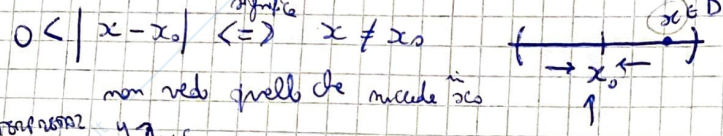 significa
0 < | x - x₀ | <=> x ≠ x₀
x ∈ D
→ x₀ ←
non vedo quello che succede in x₀